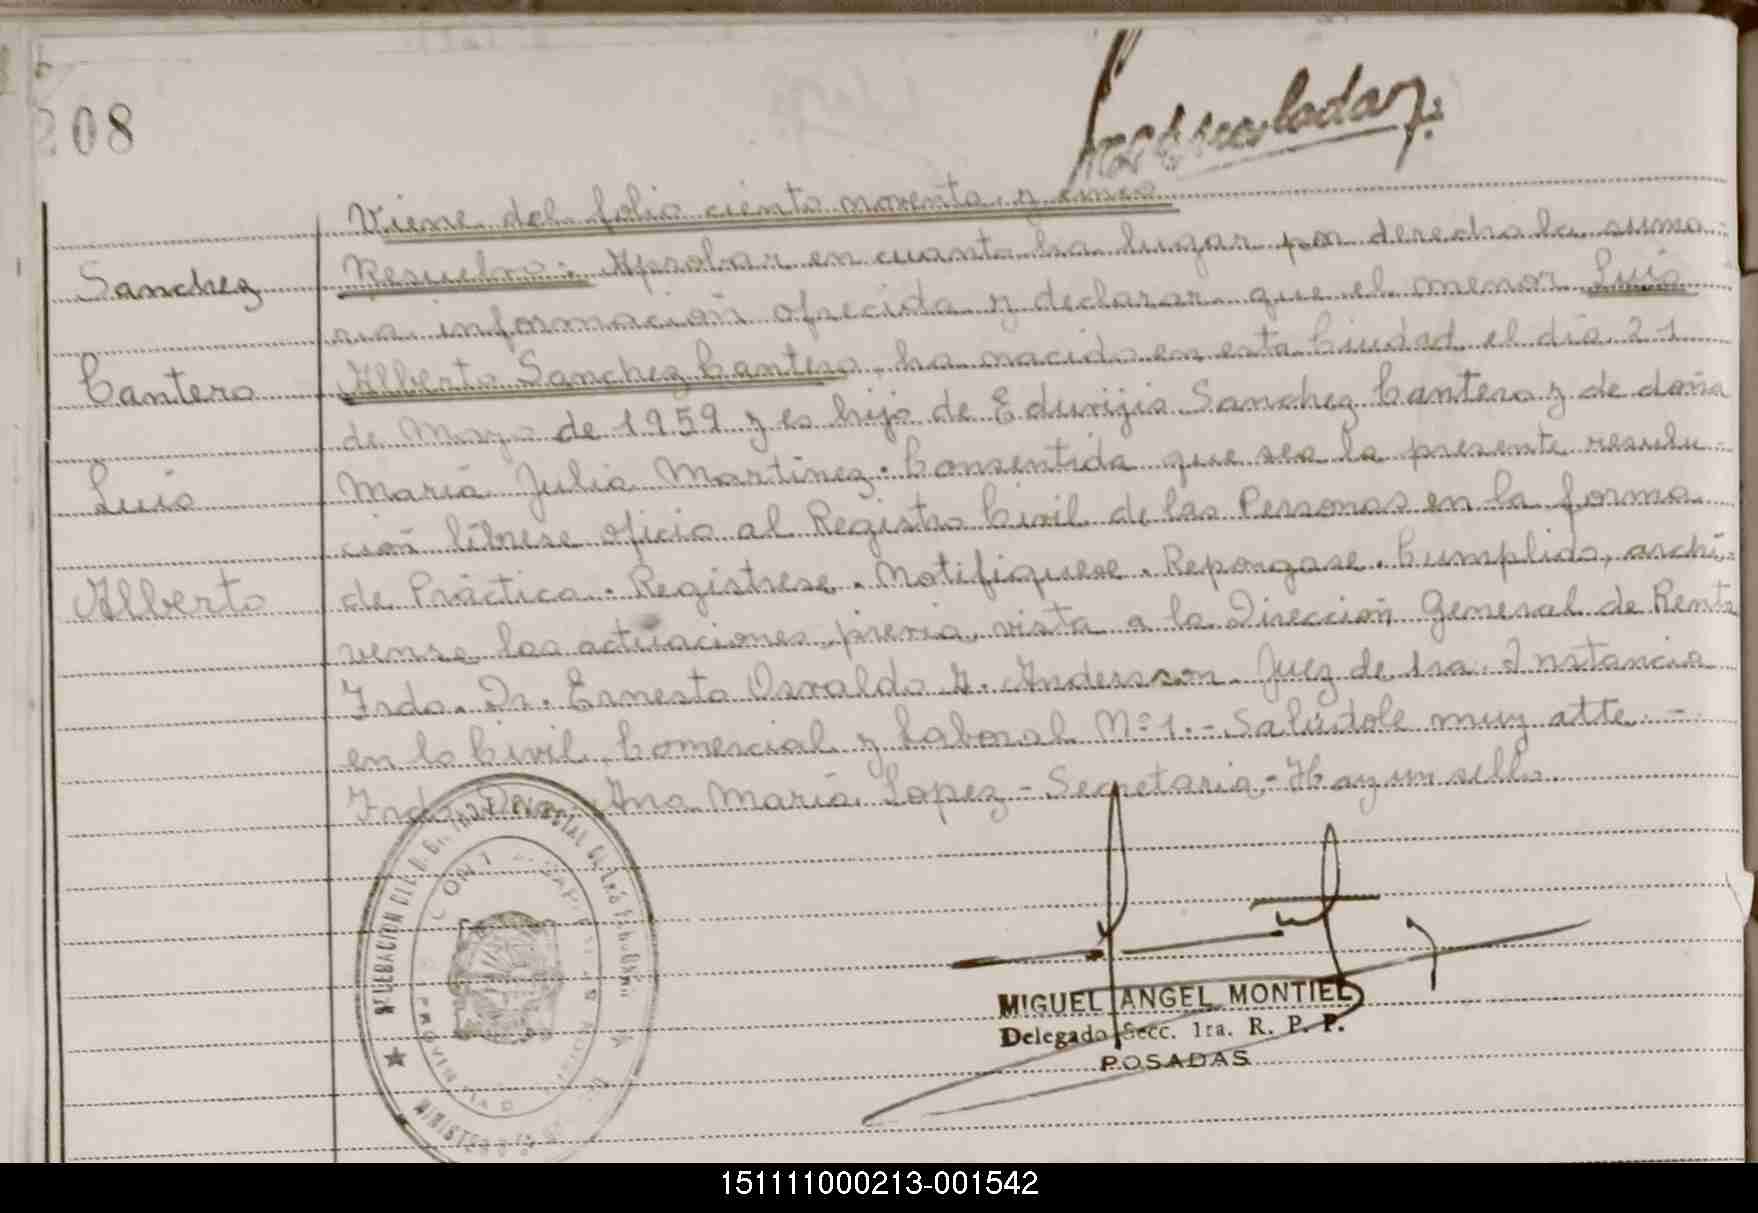 208
Viene del folio ciento noventa y cinco
Sanchez
Resuelvo: Aprobar en cuanto ha lugar por derecho la suma-
ria informacion ofrecida y declarar que el menor Luis
Cantero
Alberto Sanchez Cantero, ha nacido en esta Ciudad el dia 21
de Mayo de 1959 y es hijo de Eduvijis Sanchez Cantero y de doña
Luis
Maria Julia Martinez. Consentida que sea la presente resulu-
ción líbrese oficio al Registro Civil de las Personas en la forma
Alberto
de Práctica. Registrese. Notifiquese. Repongase. Cumplido, archi-
vense las actuaciones previa vista a la Dirección General de Renta
Fndo. Dr. Ernesto Osvaldo G. Andersson. Juez de 1ra. Instancia
en lo Civil, Comercial y Laboral Nº 1.- Salúdole muy atte. -
Fndo. Dra. Ana Maria Lopez - Secretaria - Hay un sello.
MIGUEL ANGEL MONTIEL
Delegado Secc. 1ra. R. P. P.
POSADAS
151111000213-001542